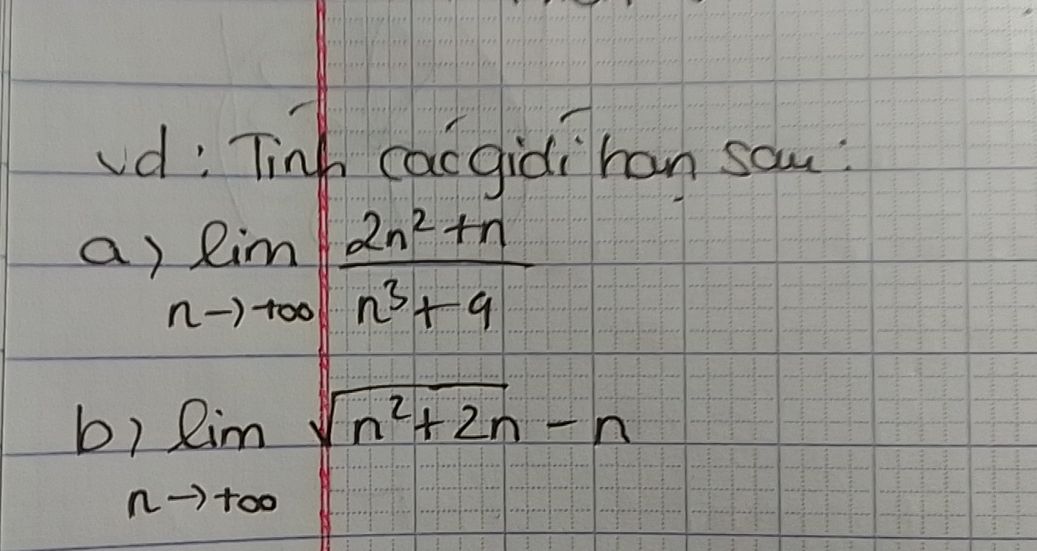 vd: Tính các giới hạn sau:
a) lim 2n²+n
n→+∞ n³+9
b) lim √n²+2n - n
n→+∞